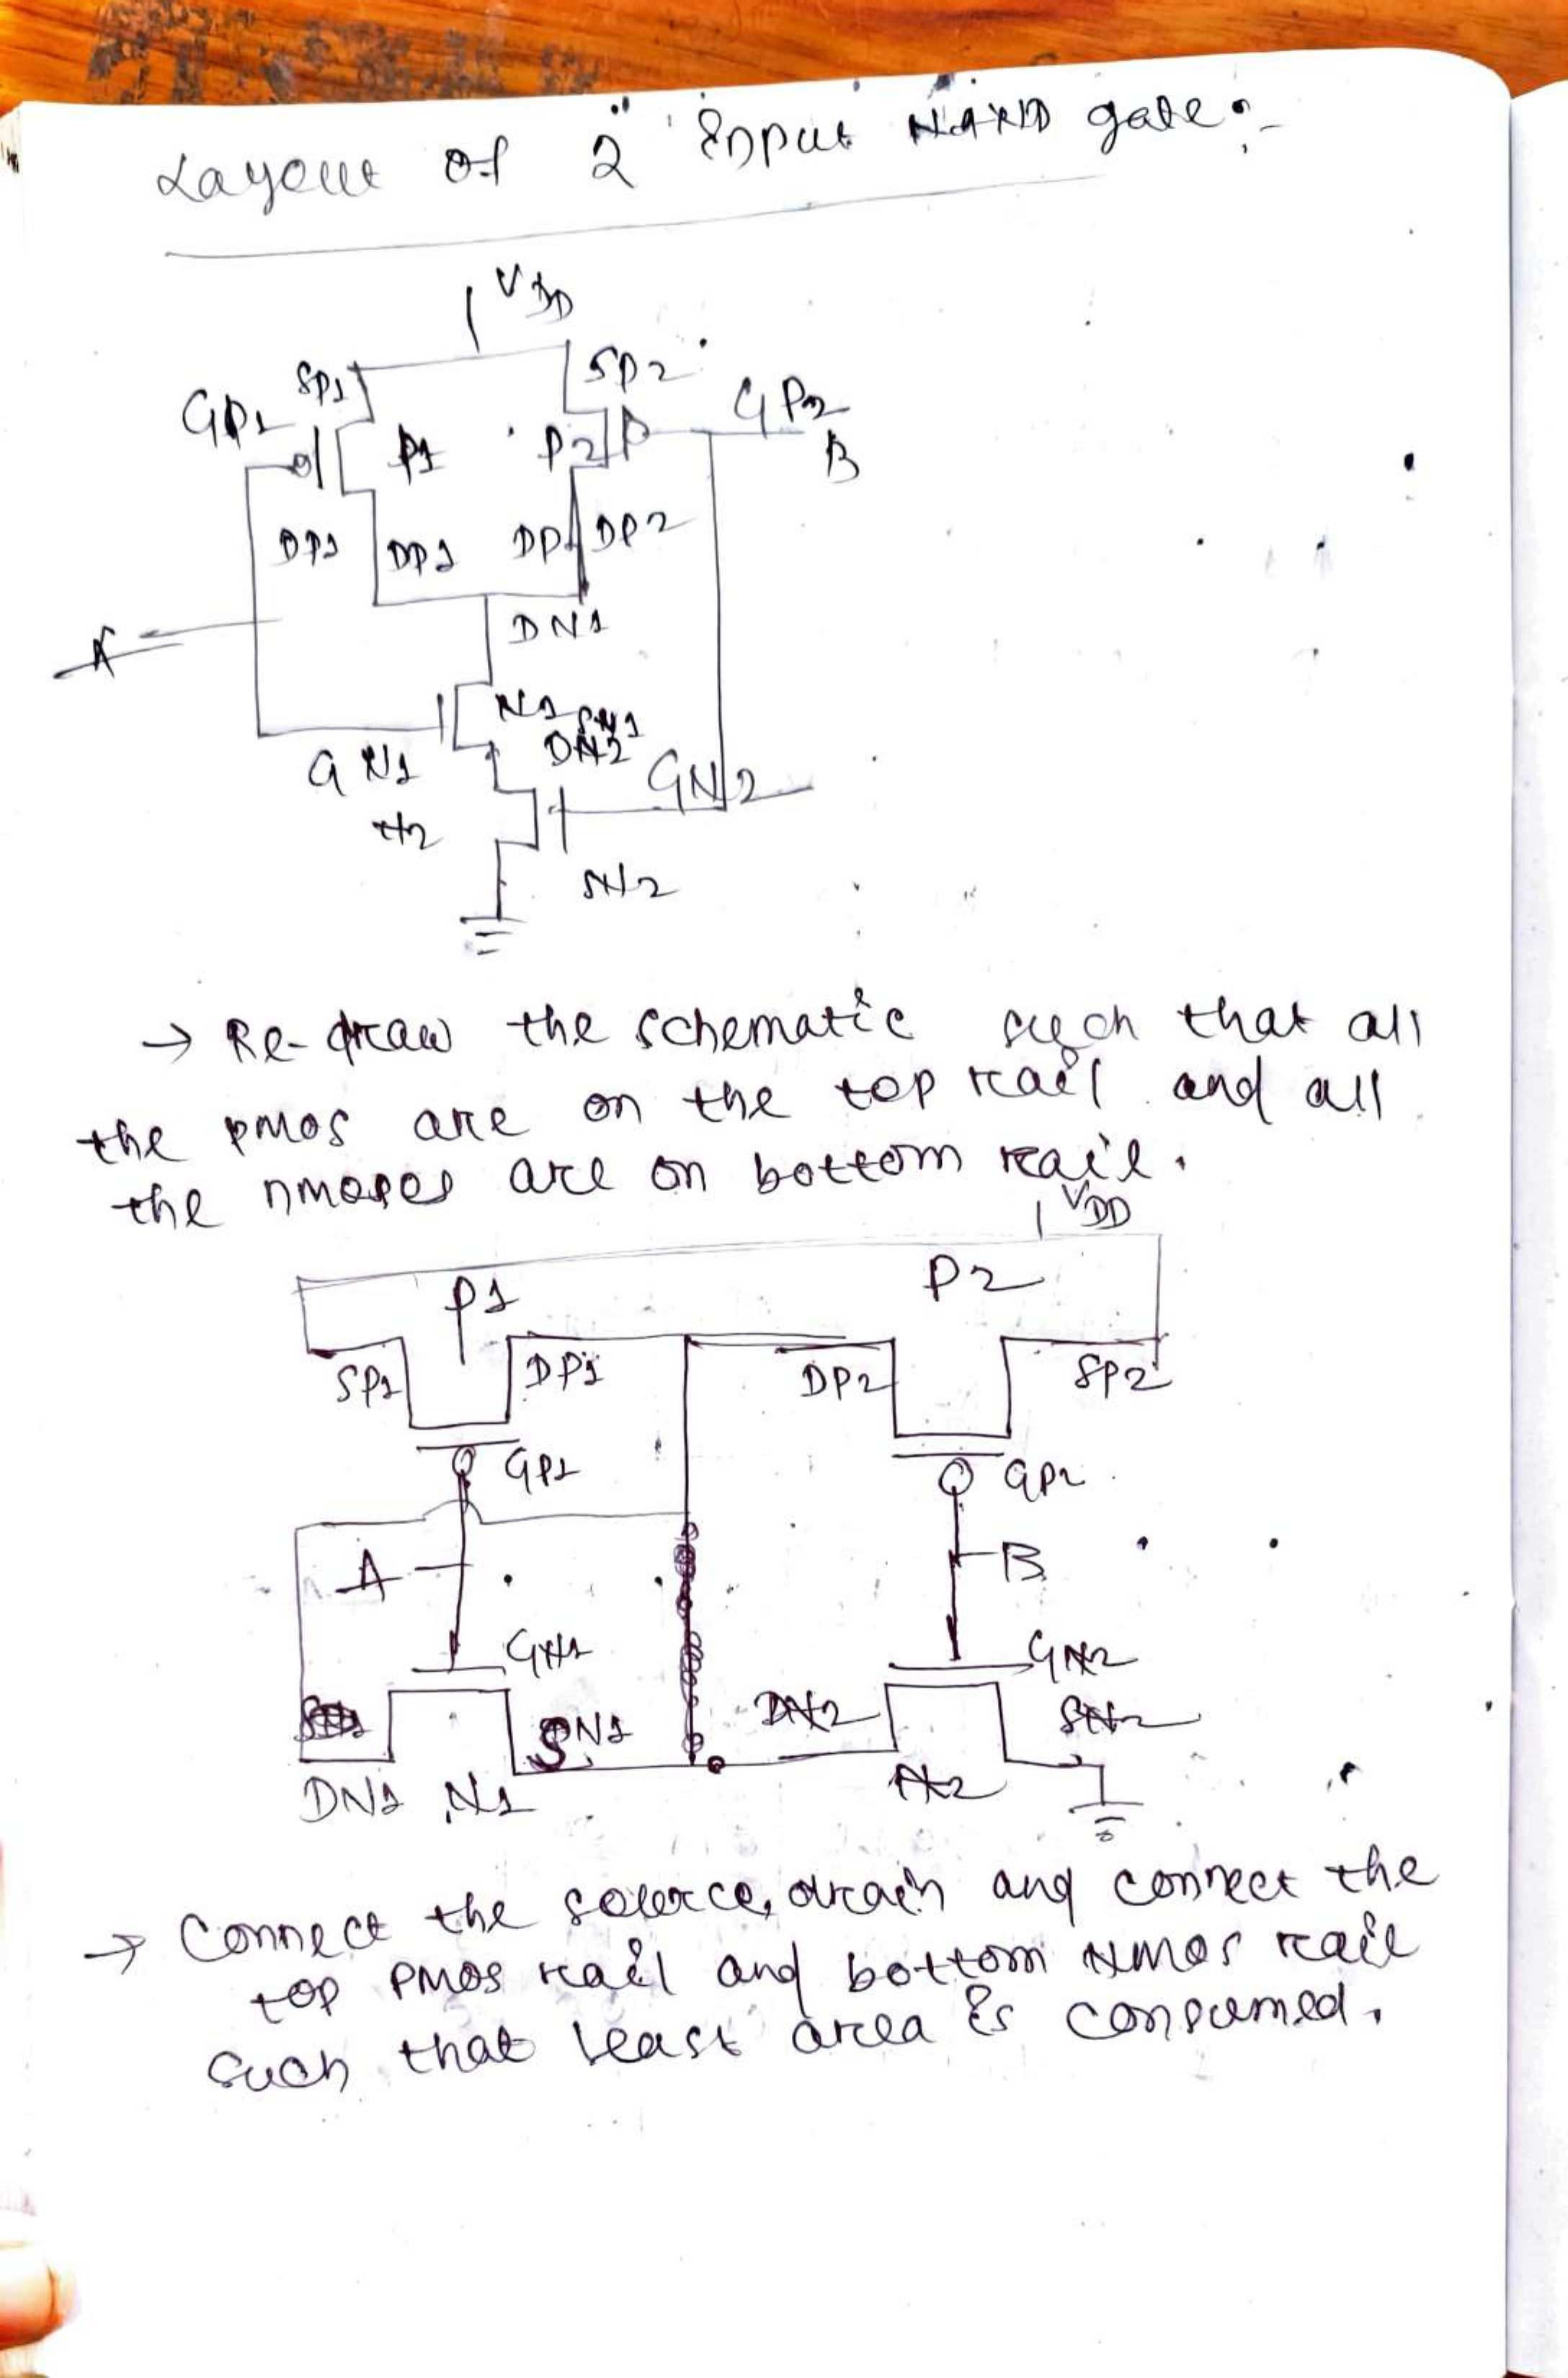 Layout of 2 input NAND gate:-
VDD
SP1 SP2
GP1 GP2
P1 P2 B
DP1 DP1 DP2
DN1
A
N1 SN1
DN2
GN1 GN2
N2
SN2
→ Re-draw the schematic such that all
the pMOS are on the top rail and all
the nmoses are on bottom rail.
VDD
P1 P2
SP1 DP1 DP2 SP2
GP1 GP2
A B
GN1 GN2
SN1 DN2 SN2
DN1 N1 N2
→ Connect the source, drain and connect the
top PMOS rail and bottom NMOS rail
such that least area is consumed.